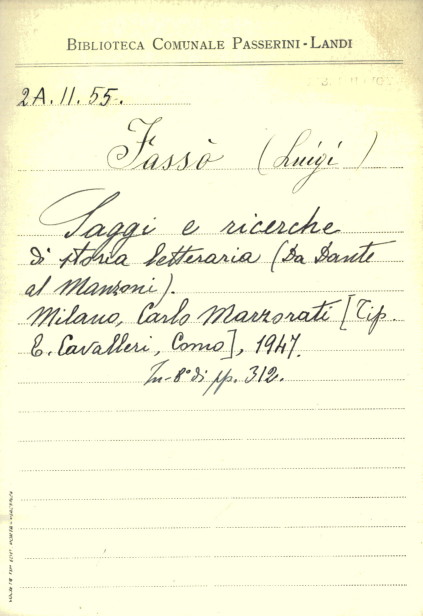 BIBLIOTECA COMUNALE PASSERINI-LANDI
2A.11.55.
Fassò (Luigi)
Saggi e ricerche
di storia letteraria (Da Dante
al Manzoni).
Milano, Carlo Marzorati [Tip.
E. Cavalleri, Como], 1947.
In-8° di pp. 312.